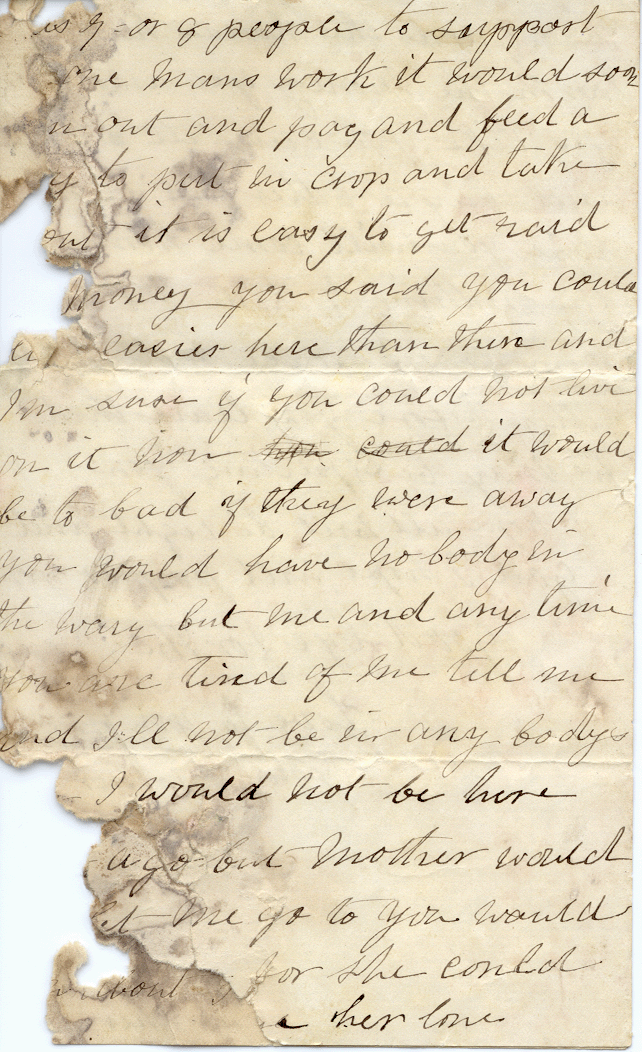 is 7 or 8 people to support
one mans work it would soon
out and pay and feed a
to put in crop and take
out it is easy to get raid
money you said you could
easier here than there and
I'm sure if you could not live
on it now how could it would
be to bad if they were away
you would have nobody in
the wary but me and any time
you are tired of me tell me
and I'll not be in any bodys
I would not be here
ago but Mother would
let me go to you would
for she could
her love